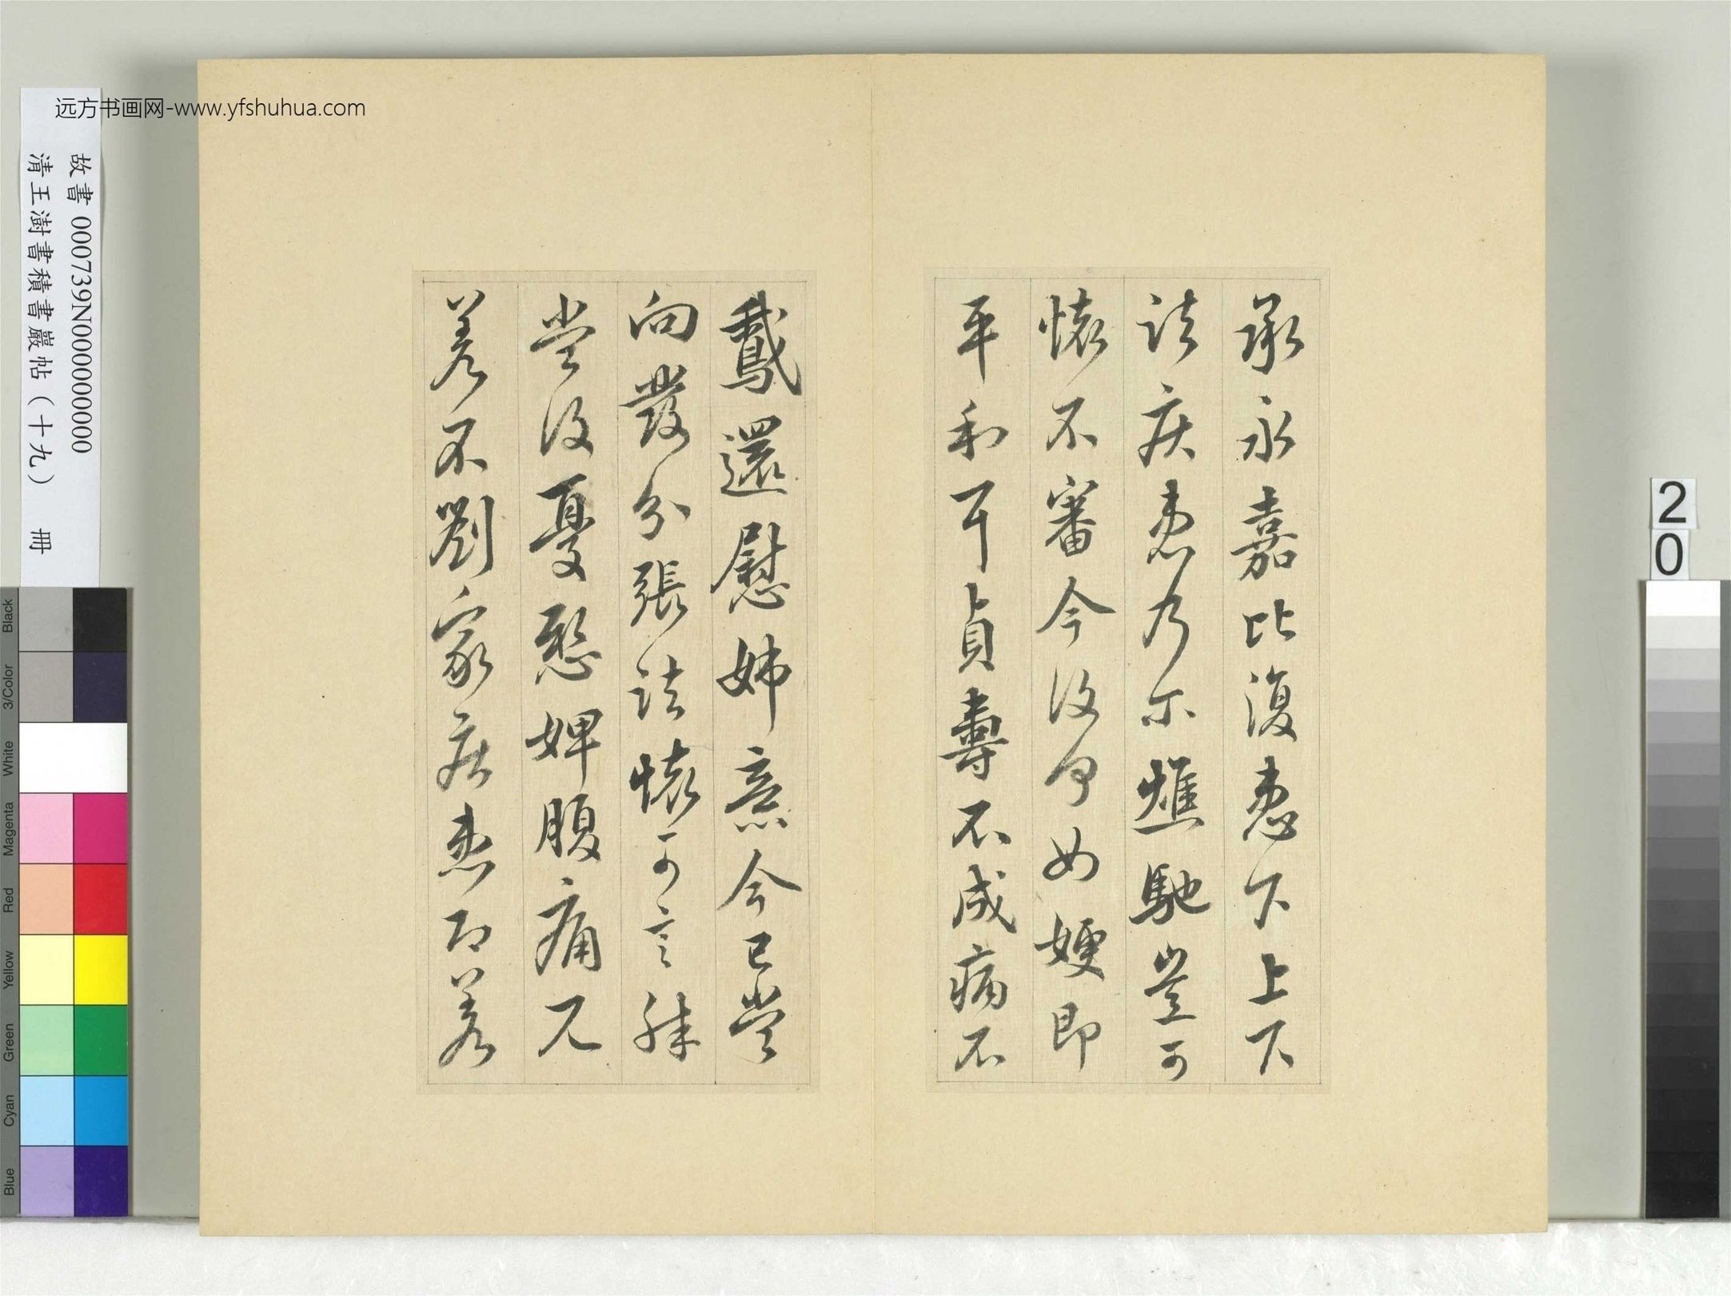 远方书画网-www.yfshuhua.com
承永嘉比復患下上下
諸疾患乃尓燋馳豈可
懷不審今復何如嫂即
平和耶貞壽不成病不
鵞還慰姊意今已當
向發分張諸懷可言殊
當復憂愍婢腹痛
差不劉家疾患即差
故書 000739N000000000
清王澍書積書巖帖（十九） 冊
20
Black
3/Color
White
Magenta
Red
Yellow
Green
Cyan
Blue